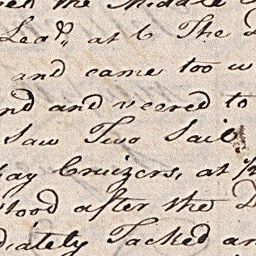 the Middle
Lead,, at 6 The
and came too w
nd and veered to
Saw Two Sail
ay Cruizers, at 1/2
stood after the
diately Tacked an